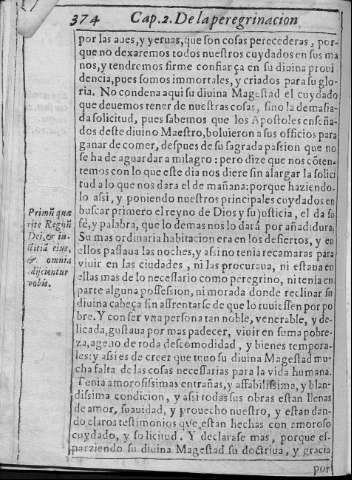 374 Cap. 2. De la peregrinacion
por las aues, y yeruas, que son cosas perecederas, por-
que no dexaremos todos nuestros cuydados en sus ma
nos, y tendremos firme confiãça en su diuina proui
dencia, pues somos immortales, y criados para su glo
ria. No condena aqui su diuina Magestad el cuydado
que deuemos tener de nuestras cosas, sino la demasia-
da solicitud, pues sabemos que los Apostoles enseña-
dos deste diuino Maestro, boluieron a sus officios para
ganar de comer, despues de su sagrada passion que no
se ha de aguardar a milagro: pero dize que nos cõten-
temos con lo que este dia nos diere sin alargar la solici
tud a lo que nos dara el de mañana: porque haziendo-
lo assi, y poniendo nuestros principales cuydados en
buscar primero el reyno de Dios y su justicia, el da su
fé, y palabra, que lo demas nos lo dará por añadidura.
Su mas ordinaria habitacion era en los desiertos, y en
ellos passaua las noches, y assi no tenia recamaras para
viuir en las ciudades, ni las procuraua, ni estaua en
ellas mas de lo necessario como peregrino, ni tenia en
parte alguna possession, ni morada donde reclinar su
diuina cabeça sin afrentarse de que lo tuuiessen por po
bre. Y con ser vna persona tan noble, venerable, y de-
licada, gustaua por mas padecer, viuir en suma pobre-
za, ageno de toda descomodidad, y bienes tempora-
les: y assi es de creer que tuuo su diuina Magestad mu-
cha falta de las cosas necessarias para la vida humana.
Tenia amorosissimas entrañas, y affabilissimo, y blan-
dissima condicion, y assi todas sus obras estan llenas
de amor, suauidad, y prouecho nuestro, y estan dan-
do claros testimonios que estan hechas con amoroso
cuydado, y solicitud. Y declarase mas, porque es-
parziendo su diuina Magestad su doctrina, y gracia
por
Primũ quæ
rite Regnũ
Dei, & iu-
stitiã eius,
& omnia
adijcientur
vobis.